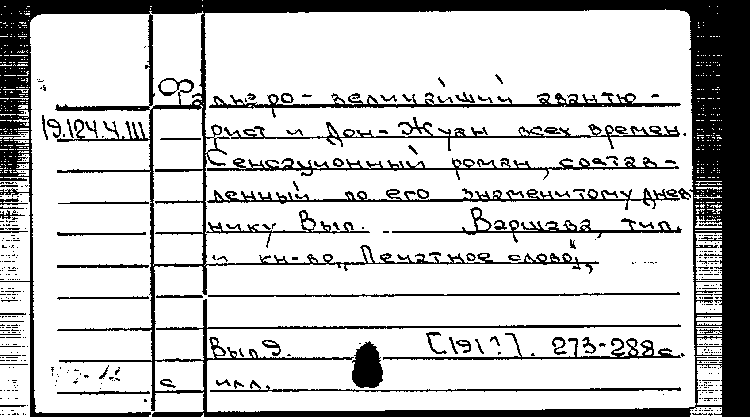 Фальгро - величайший авантю-
19.124.4.III рист и Дон-Жуан всех времен.
Сенсационный роман, состав-
ленный по его знаменитому днев-
нику. Вып. Варшава, тип.
и кн-во „Печатное слово",
Вып 9. [191?]. 273-288 с.
с илл.